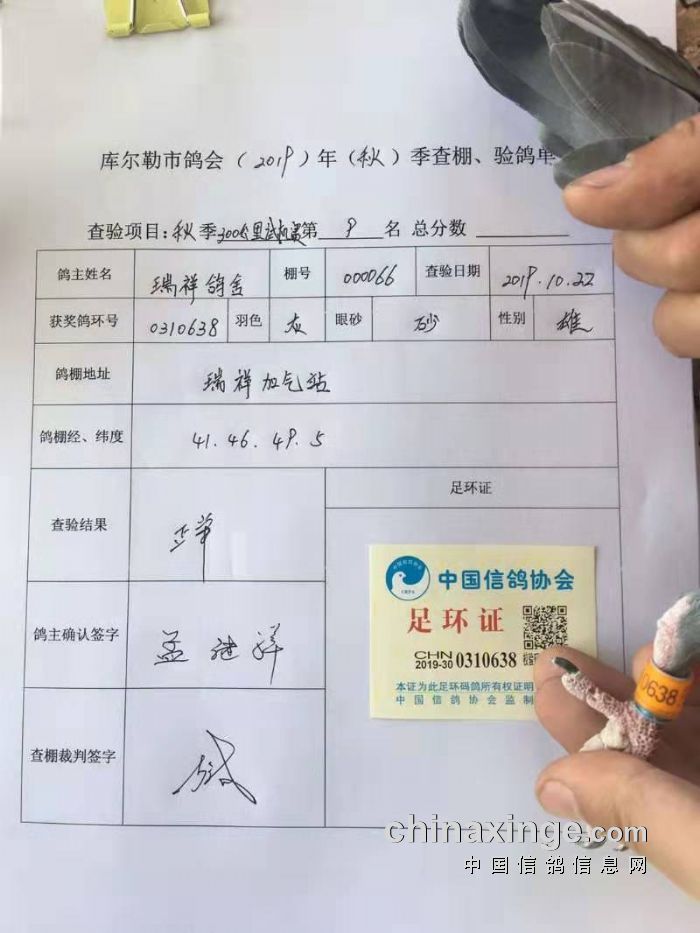 库尔勒市鸽会（2019）年（秋）季查棚、验鸽单
查验项目：秋季300公里试机赛第 9 名 总分数
鸽主姓名 瑞祥鸽舍 棚号 000066 查验日期 2019.10.22
获奖鸽环号 0310638 羽色 灰 眼砂 砂 性别 雄
鸽棚地址 瑞祥加气站
鸽棚经、纬度 41.46.49.5
查验结果
足环证
鸽主确认签字 孟进祥
查棚裁判签字
中国信鸽协会
足环证
CHN
2019-30 0310638
本证为此足环码鸽所有权证明
中国信鸽协会监制
0638
chinaxinge.com
中国信鸽信息网